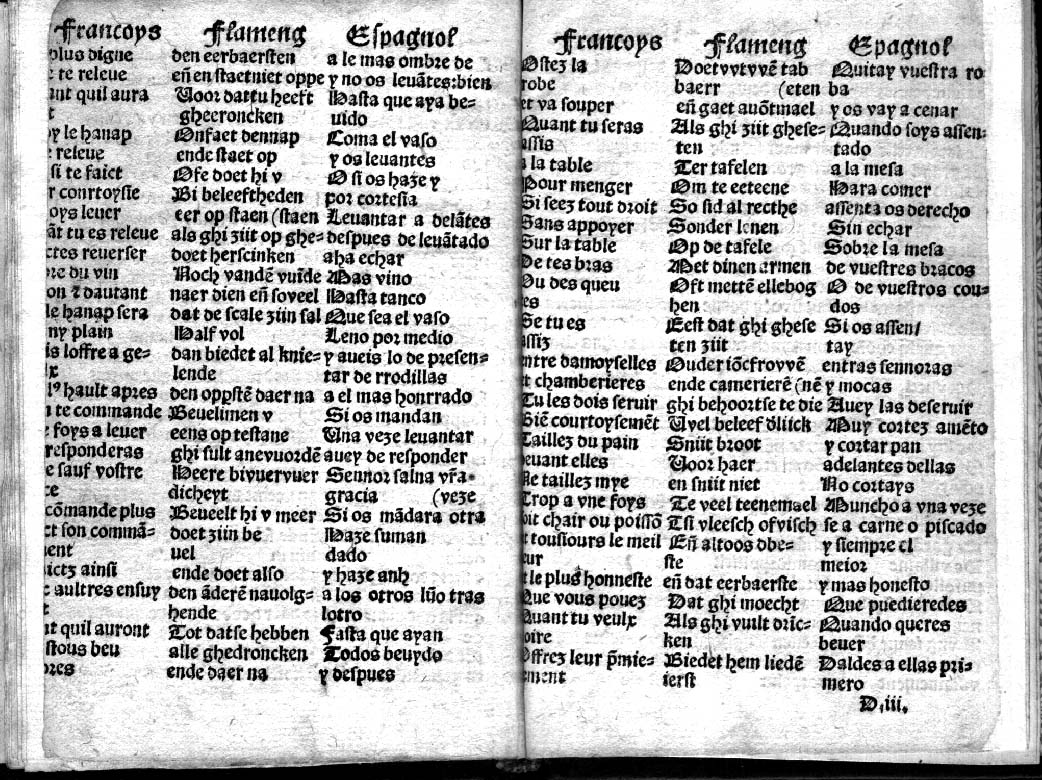 Francoys Flameng Espagnol
plus digne den eerbaersten a le mas ombre de
te releue eñ en staet niet oppe y no os leuātes:bien
ant quil aura Voor dattu heeft Hasta que aya be-
t gheeroncken uido
le hanap Onfaet dennap Coma el vaso
releue ende staet op y os leuantes
si te faict Ofe doet hi v O si os haze y
courtoysie Bi beleeftheden por cortesia
oys leuer eer op staen (staen Leuantar a delātes
āt tu es releue als ghi ziit op ghe- despues de leuātado
ctes reuerser doet herscinken aha echar
du vin Noch vandē vuide Mas vino
on ⁊ dautant naer dien eñ soveel Hasta tanco
le hanap sera dat de scale ziin sal Que sea el vaso
ny plain Half vol Leno por medio
is loffre a ge- dan biedet al knie- y aueis lo de presen-
lende tar de rrodillas
hault apres den oppstē daer na a el mas honrrado
te commande Beuelimen v Si os mandan
foys a leuer eens op te stane Una veze leuantar
responderas ghi sult anevuordē auey de responder
sauf vostre Heere bivuervuer Sennor salna vr̃a
ce dicheyt gracia (veze
cōmande plus Beueelt hi v meer Si os mādara otra
ct son commā- doet ziin be Haze suman
ment uel dado
ictz ainsi ende doet also y haze anh
aultres ensuy den āderē nauolg- a los otros lũo tras
t hende lotro
nt quil auront Tot datse hebben Fasta que ayan
stous beu alle ghedroncken Todos beuydo
pres ende daer na y despues
Francoys Flameng Epagnol
Ostez la Doetvvtvvē tab Quitay vuestra ro
robe baerr (eten ba
et va souper eñ gaet auōtmael y os vay a cenar
Quant tu seras Als ghi ziit ghese- Quando soys assen-
assis ten tado
a la table Ter tafelen a la mesa
Pour menger Om te eeteene Para comer
Si seez tout droit So sid al recthe assenta os derecho
Sans appoyer Sonder lenen Sin echar
Sur la table Op de tafele Sobre la mesa
De tes bras Met dinen armen de vuestres bracos
Ou des queu Oft mettē ellebog O de vuestros cou-
es hen dos
Se tu es Eest dat ghi ghese Si os assen/
assiz ten ziit tay
entre damoyselles Ouder iōcfrovvē entras sennoras
et chamberieres ende camerierē (nē y mocas
Tu les dois seruir ghi behoortse te die Auey las deseruir
Biē courtoysemēt Uyel beleef dliick Muy cortez amēto
Taillez du pain Sniit broot y cortar pan
deuant elles Voor haer adelantes dellas
Ne taillez mye en sniit niet No cortays
Trop a vne foys Te veel teenemael Muncho a vna veze
soit chair ou poissō Tsi vleesch ofvisch se a carne o piscado
et tousiours le meil Eñ altoos dbe- y siempre el
eur ste meior
et le plus honneste eñ dat eerbaerste y mas honesto
Que vous pouez Dat ghi moecht Que puedieredes
Quant tu veulx Als ghi vuilt drīc- Quando queres
boire ken beuer
Offrez leur p̄mie- Biedet hem liedē Daldes a ellas pri-
ement ierst mero
D.iii.